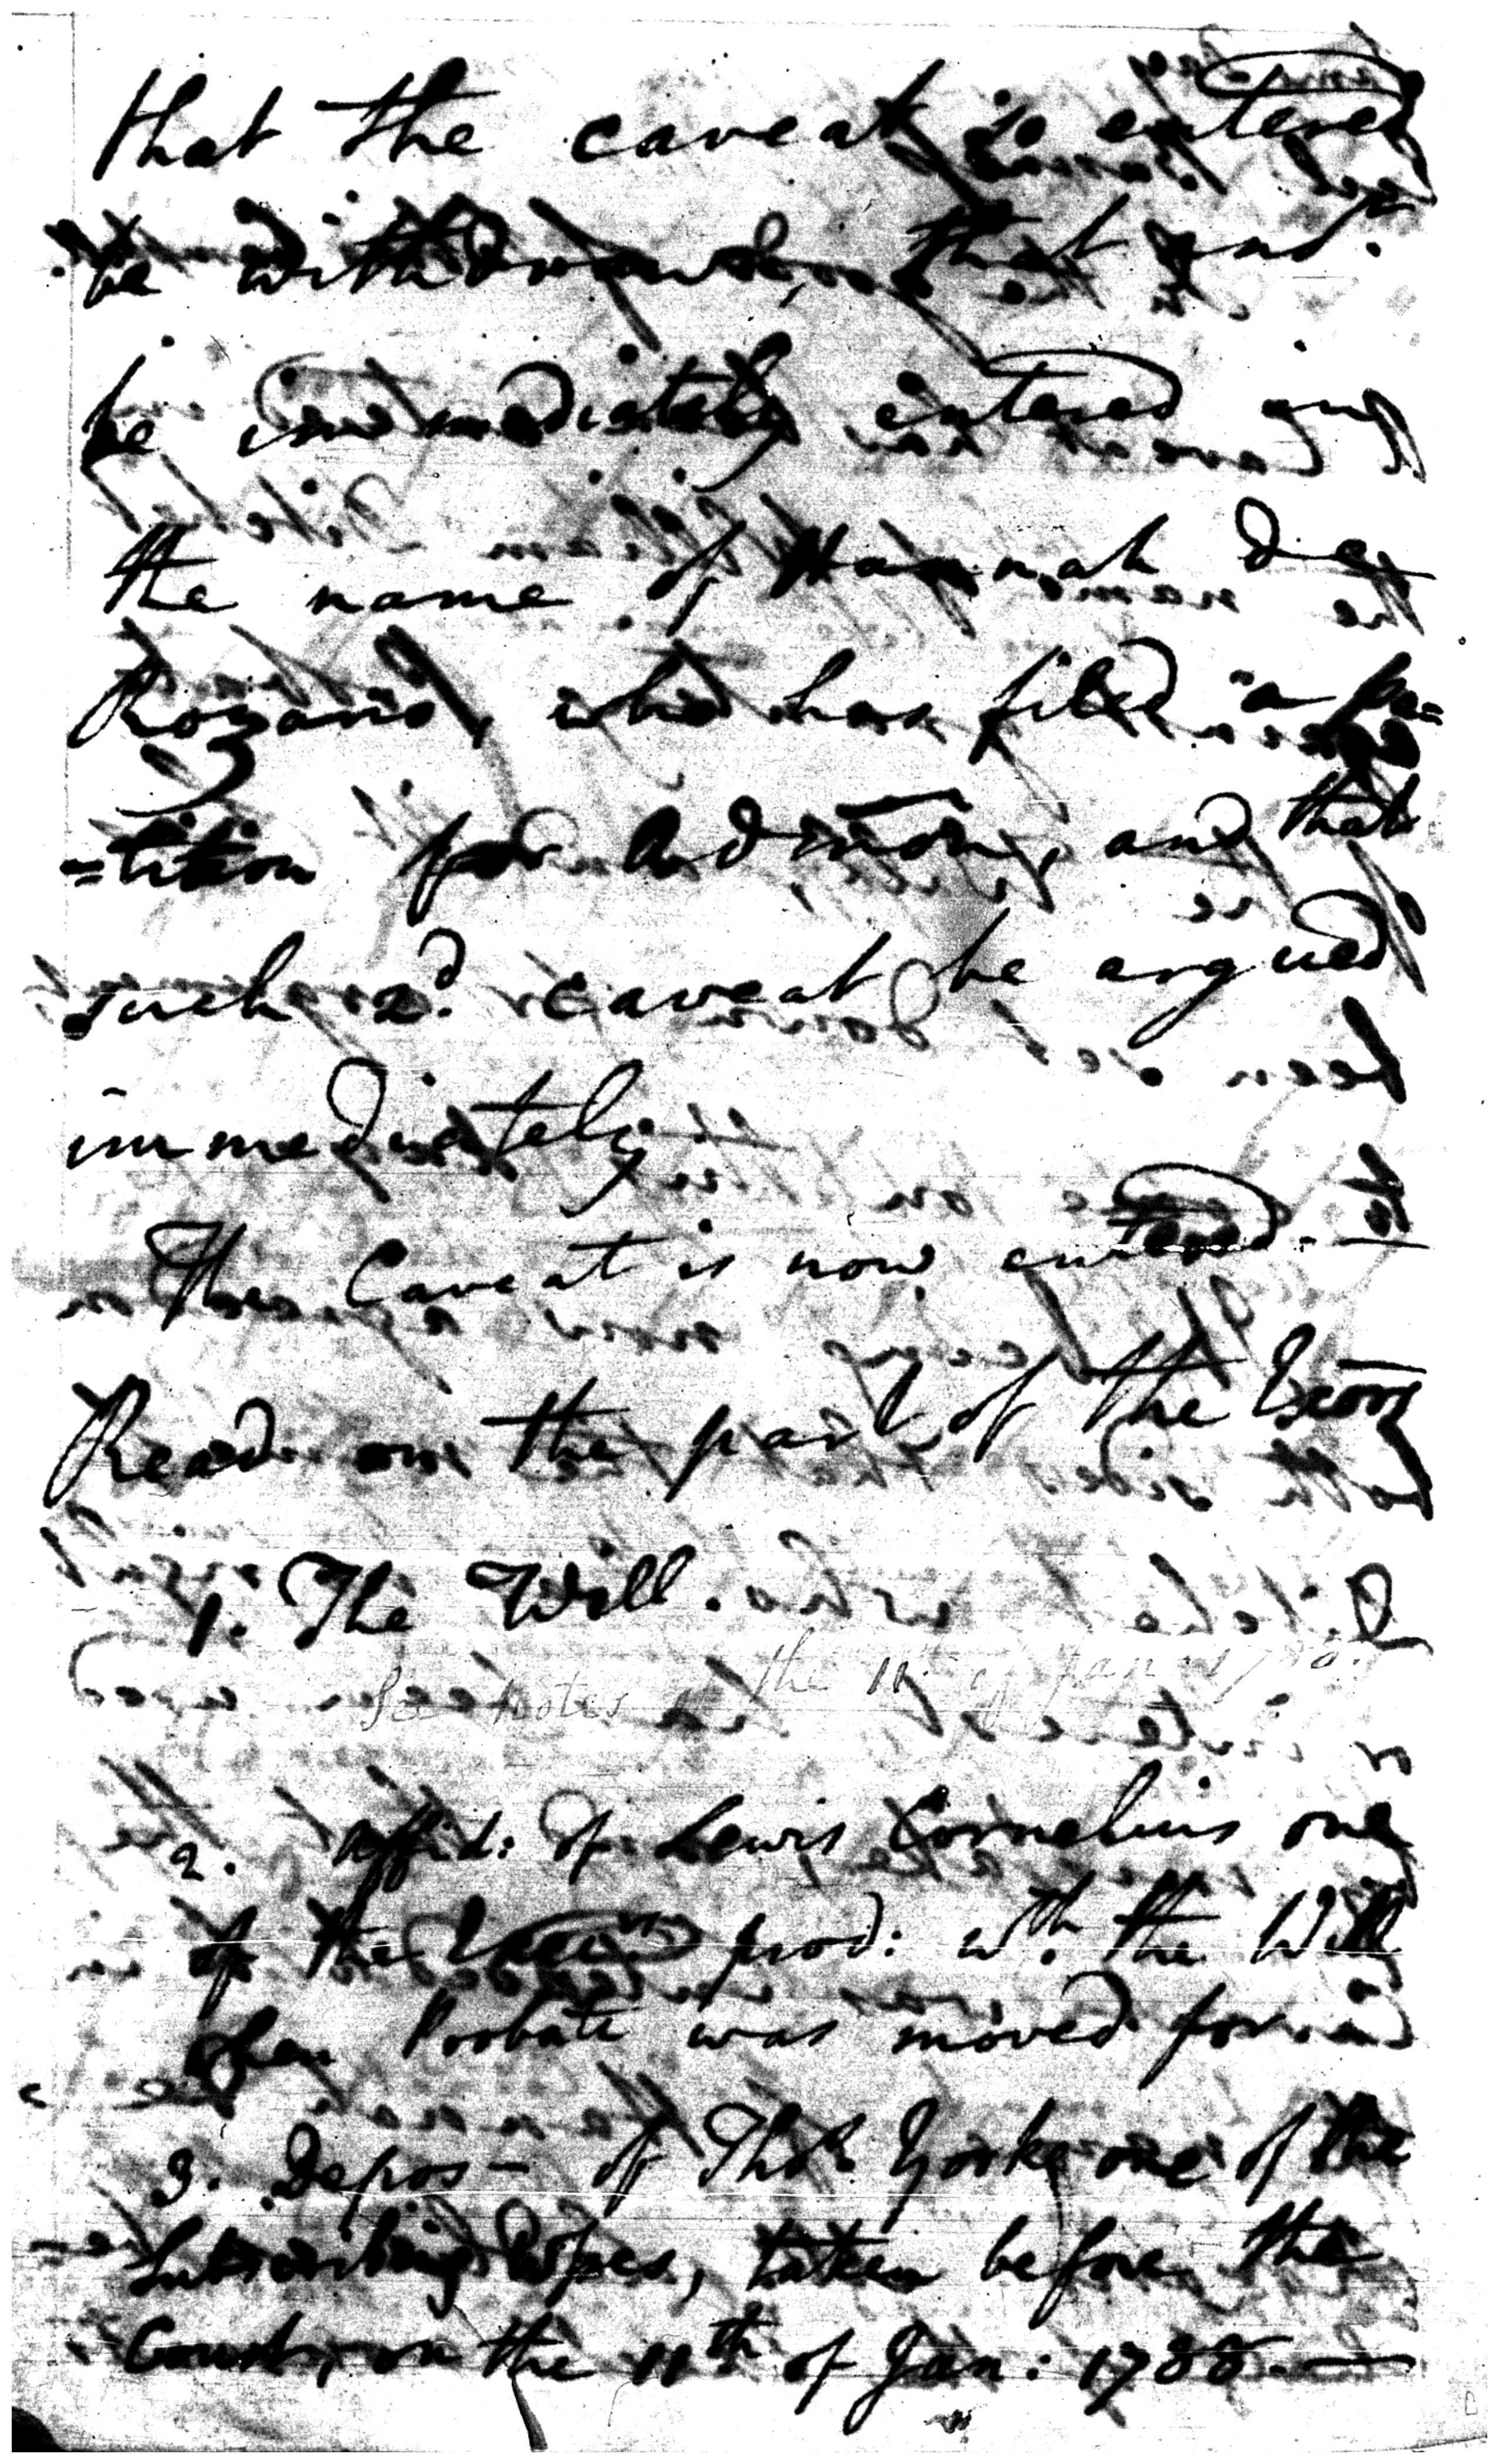 that the caveat so entered
be withdrawn, that
be immediately entered
the name of Hannah De
Rozario, who has filed a pe=
=tition for Admõn, and that
such 2d. caveat be argued
immediately
The Caveat is now entered. —
Read on the part of the Exors
1. The Will.
See notes of the 11th of Jan: 1788.
2. Affid: of Lewis Cornelius one
of the prod: wth. the Will
when Probate was moved for.
3. Depos— of Thos. Yorke one of the
Subscribing Witnes, taken before the
Court, on the 11th of Jan: 1788. —